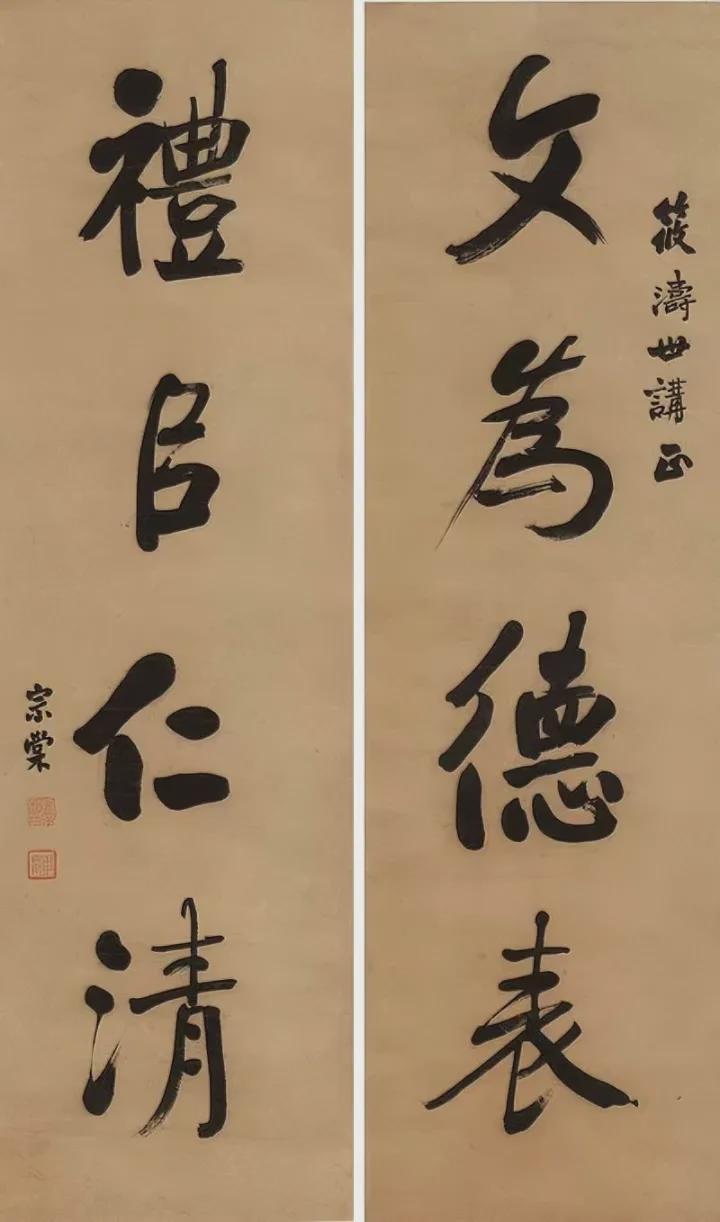 筱濤世講正
文為德表
禮㠯仁清
宗棠